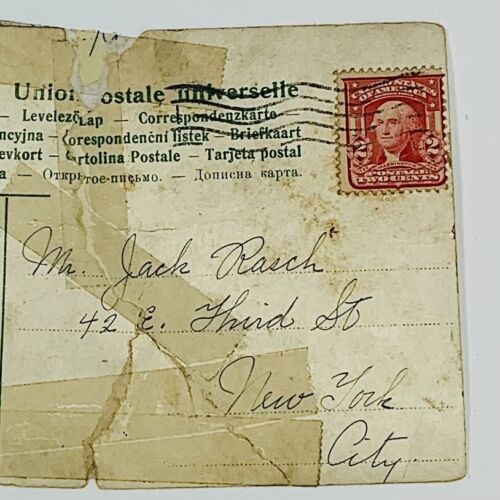 Union Postale Universelle
Levelező Lap - Correspondenzkarte
ncyjna - Corespondenční listek - Briefkaart
evkort - Cartolina Postale - Tarjeta postal
a - Открытое-письмо. - Дописна карта.
UNITED STATES
OF AMERICA
2 2
WASHINGTON
POSTAGE
TWO CENTS
Mr. Jack Rasch
42 E. Third St
New York
City.